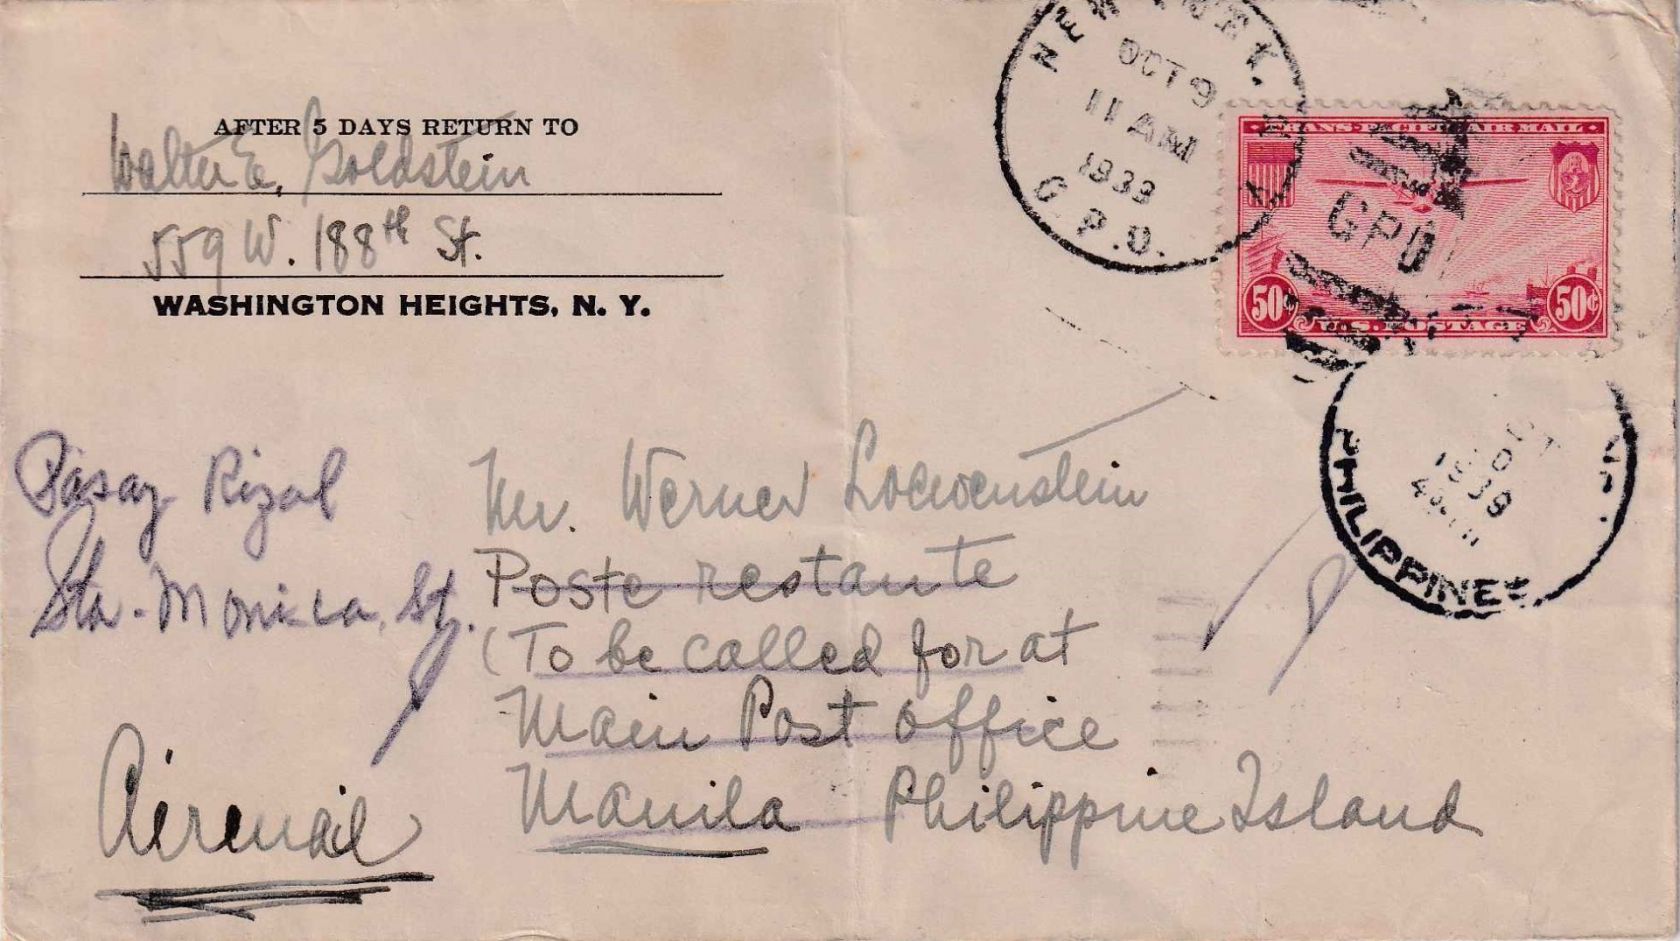 AFTER 5 DAYS RETURN TO
Walter E. Goldstein
559 W. 188th St.
WASHINGTON HEIGHTS, N. Y.
NEW YORK, N.Y.
OCT 9
11 AM
1939
G.P.O.
TRANS-PACIFIC AIR MAIL
GPO
50¢ 50¢
U.S. POSTAGE
1939
PHILIPPINES
Pasay Rizal
Sta. Monica, St.
Mr. Werner Loewenstein
Poste restante
(To be called for at
Main Post Office
Manila Philippine Island
Airmail